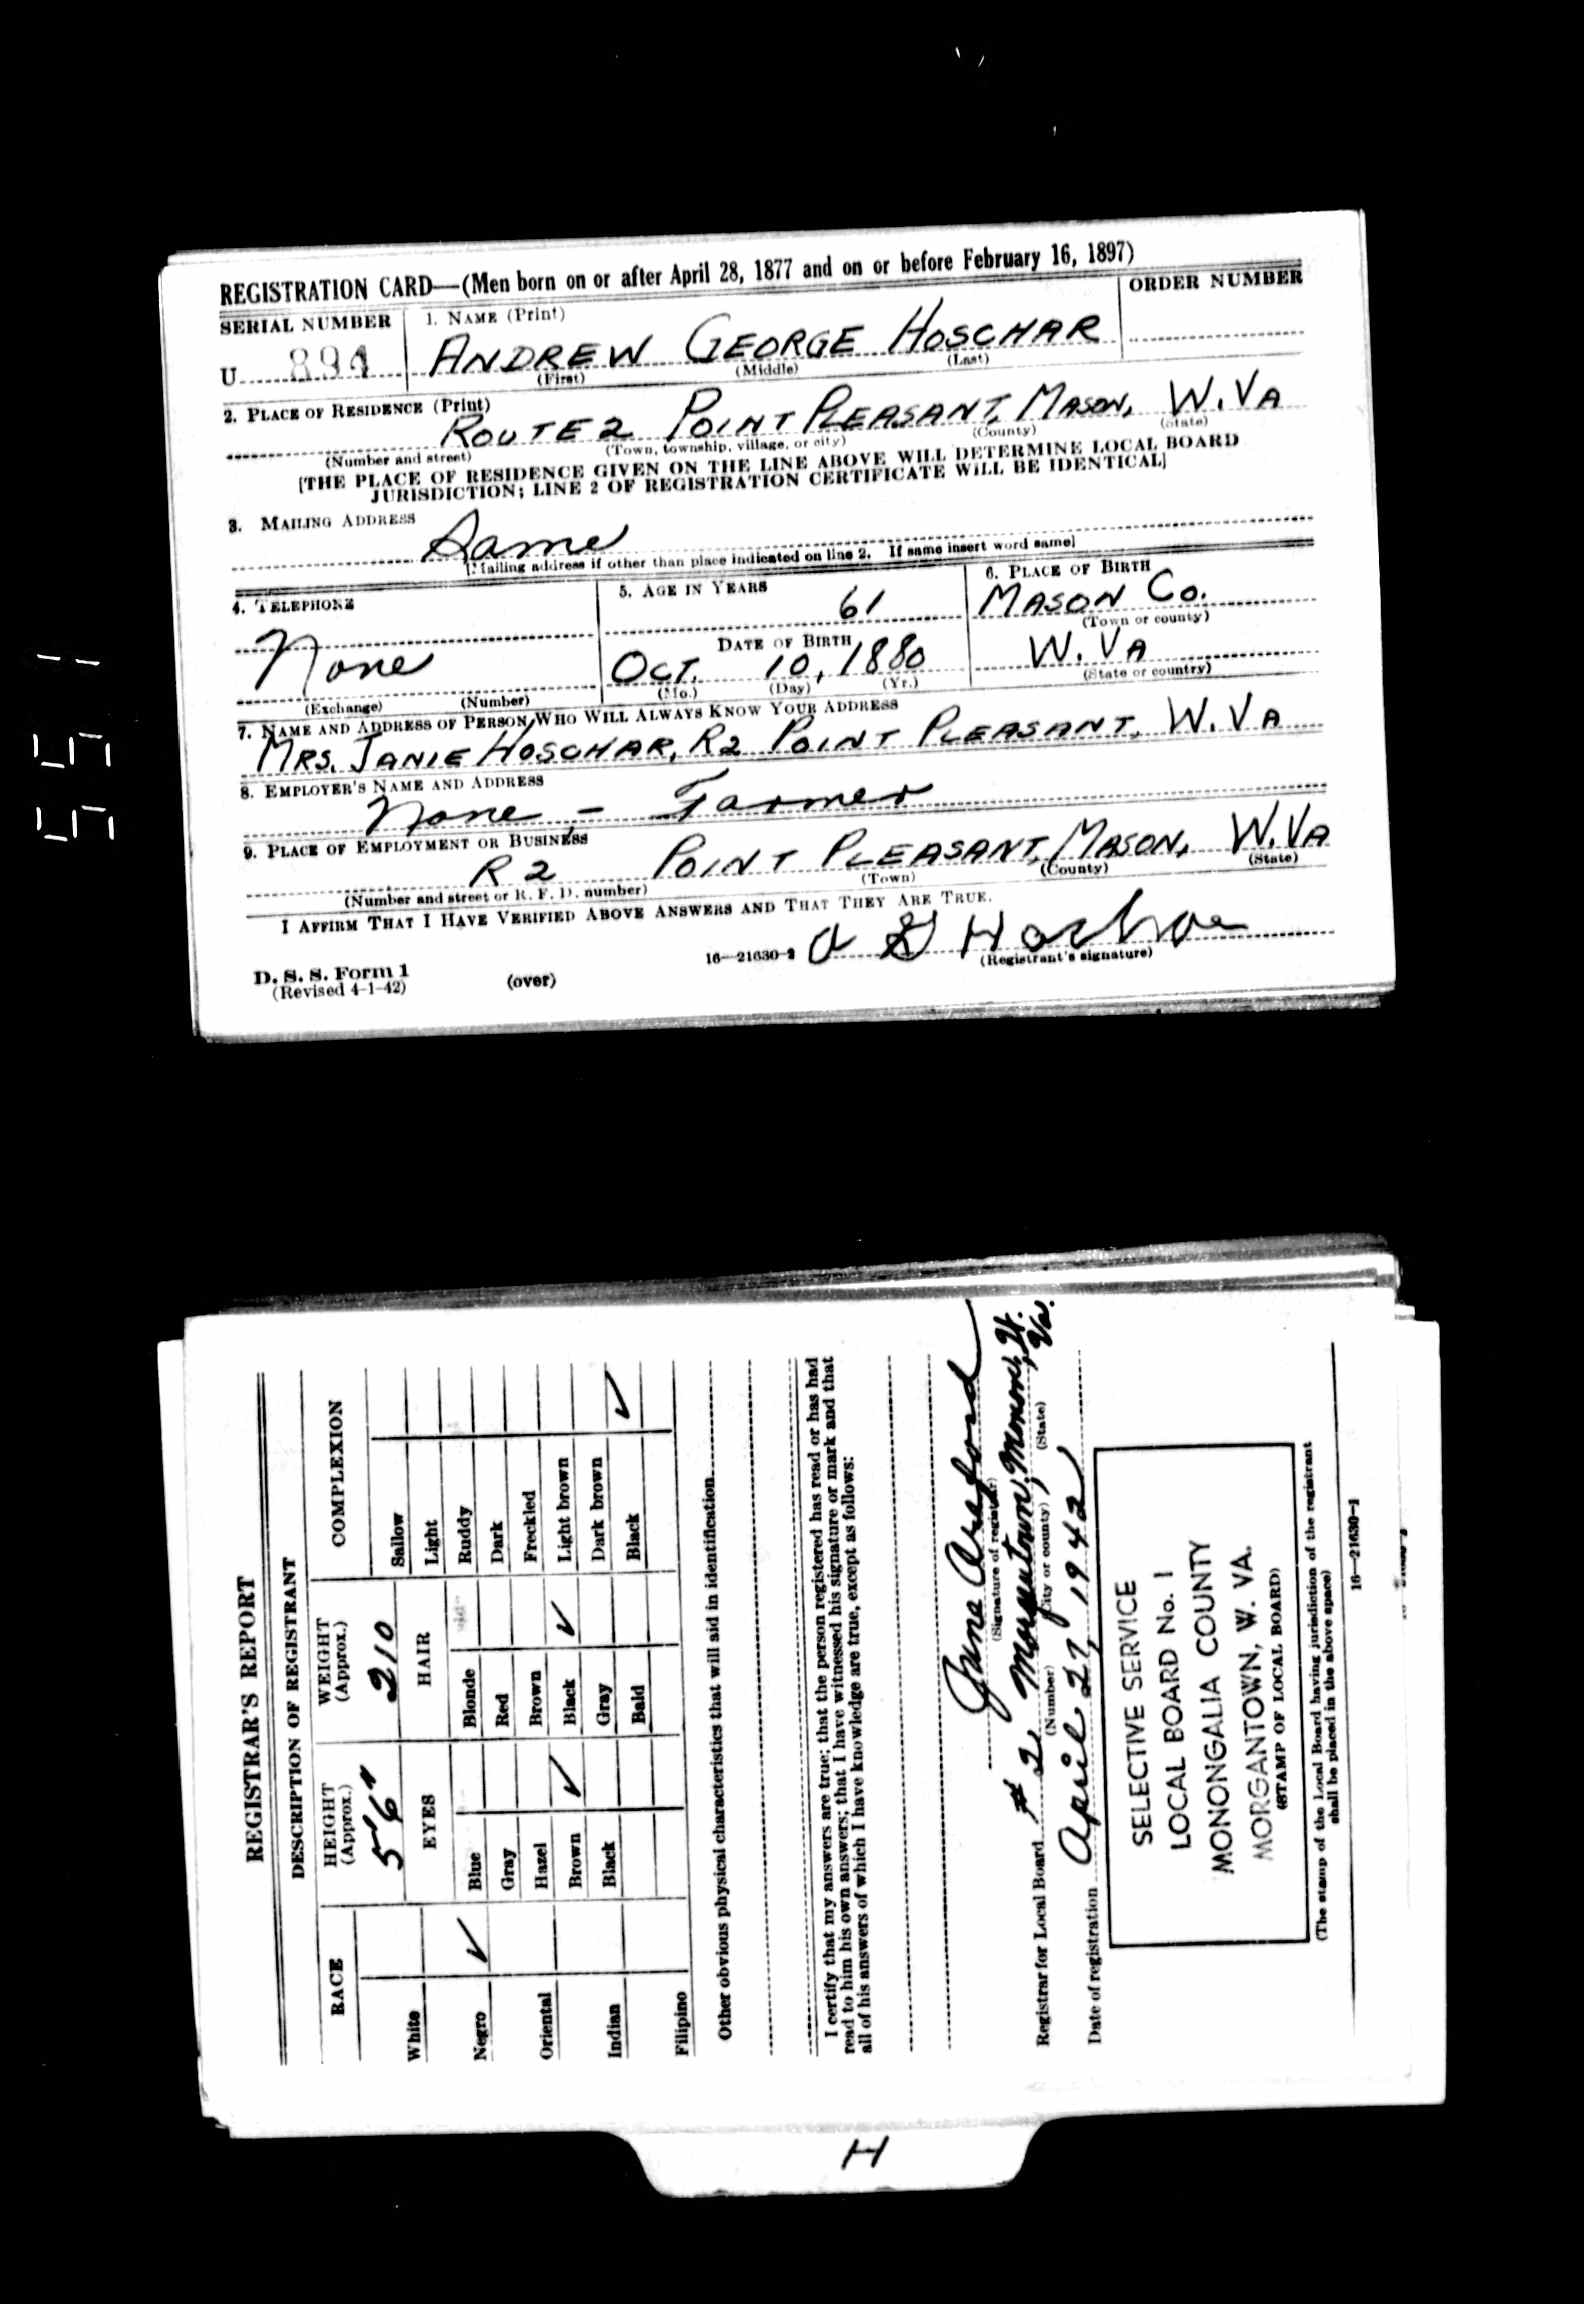 REGISTRATION CARD—(Men born on or after April 28, 1877 and on or before February 16, 1897)
SERIAL NUMBER
1. NAME (Print)
ORDER NUMBER
U 894
ANDREW GEORGE HOSCHAR
(First) (Middle) (Last)
2. PLACE OF RESIDENCE (Print)
ROUTE 2 POINT PLEASANT, MASON, W. VA
(Number and street) (Town, township, village, or city) (County) (State)
[THE PLACE OF RESIDENCE GIVEN ON THE LINE ABOVE WILL DETERMINE LOCAL BOARD
JURISDICTION; LINE 2 OF REGISTRATION CERTIFICATE WILL BE IDENTICAL]
3. MAILING ADDRESS
Same
[Mailing address if other than place indicated on line 2. If same insert word same]
4. TELEPHONE
None
(Exchange) (Number)
5. AGE IN YEARS
61
DATE OF BIRTH
OCT. 10, 1880
(Mo.) (Day) (Yr.)
6. PLACE OF BIRTH
MASON CO.
(Town or county)
W. VA
(State or country)
7. NAME AND ADDRESS OF PERSON WHO WILL ALWAYS KNOW YOUR ADDRESS
MRS. JANIE HOSCHAR, R2 POINT PLEASANT, W. VA
8. EMPLOYER'S NAME AND ADDRESS
None - Farmer
9. PLACE OF EMPLOYMENT OR BUSINESS
R 2 POINT PLEASANT, MASON, W. VA
(Number and street or R. F. D. number) (Town) (County) (State)
I AFFIRM THAT I HAVE VERIFIED ABOVE ANSWERS AND THAT THEY ARE TRUE.
D. S. S. Form 1
(Revised 4-1-42)
(over)
16—21630-2
A G Hoschar
(Registrant's signature)
551
REGISTRAR'S REPORT
DESCRIPTION OF REGISTRANT
RACE
White
Negro ✓
Oriental
Indian
Filipino
HEIGHT
(Approx.)
5'6"
WEIGHT
(Approx.)
210
EYES
Blue
Gray
Hazel
Brown ✓
Black
HAIR
Blonde
Red
Brown
Black ✓
Gray
Bald
COMPLEXION
Sallow
Light
Ruddy
Dark
Freckled
Light brown
Dark brown
Black ✓
Other obvious physical characteristics that will aid in identification
I certify that my answers are true; that the person registered has read or has had
read to him his own answers; that I have witnessed his signature or mark and that
all of his answers of which I have knowledge are true, except as follows:
(Signature of registrar)
Registrar for Local Board # 2 Morgantown, Monon, W. Va.
(Number) (City or county) (State)
Date of registration April 27, 1942
SELECTIVE SERVICE
LOCAL BOARD No. 1
MONONGALIA COUNTY
MORGANTOWN, W. VA.
(STAMP OF LOCAL BOARD)
(The stamp of the Local Board having jurisdiction of the registrant
shall be placed in the above space)
16—21630-1
H